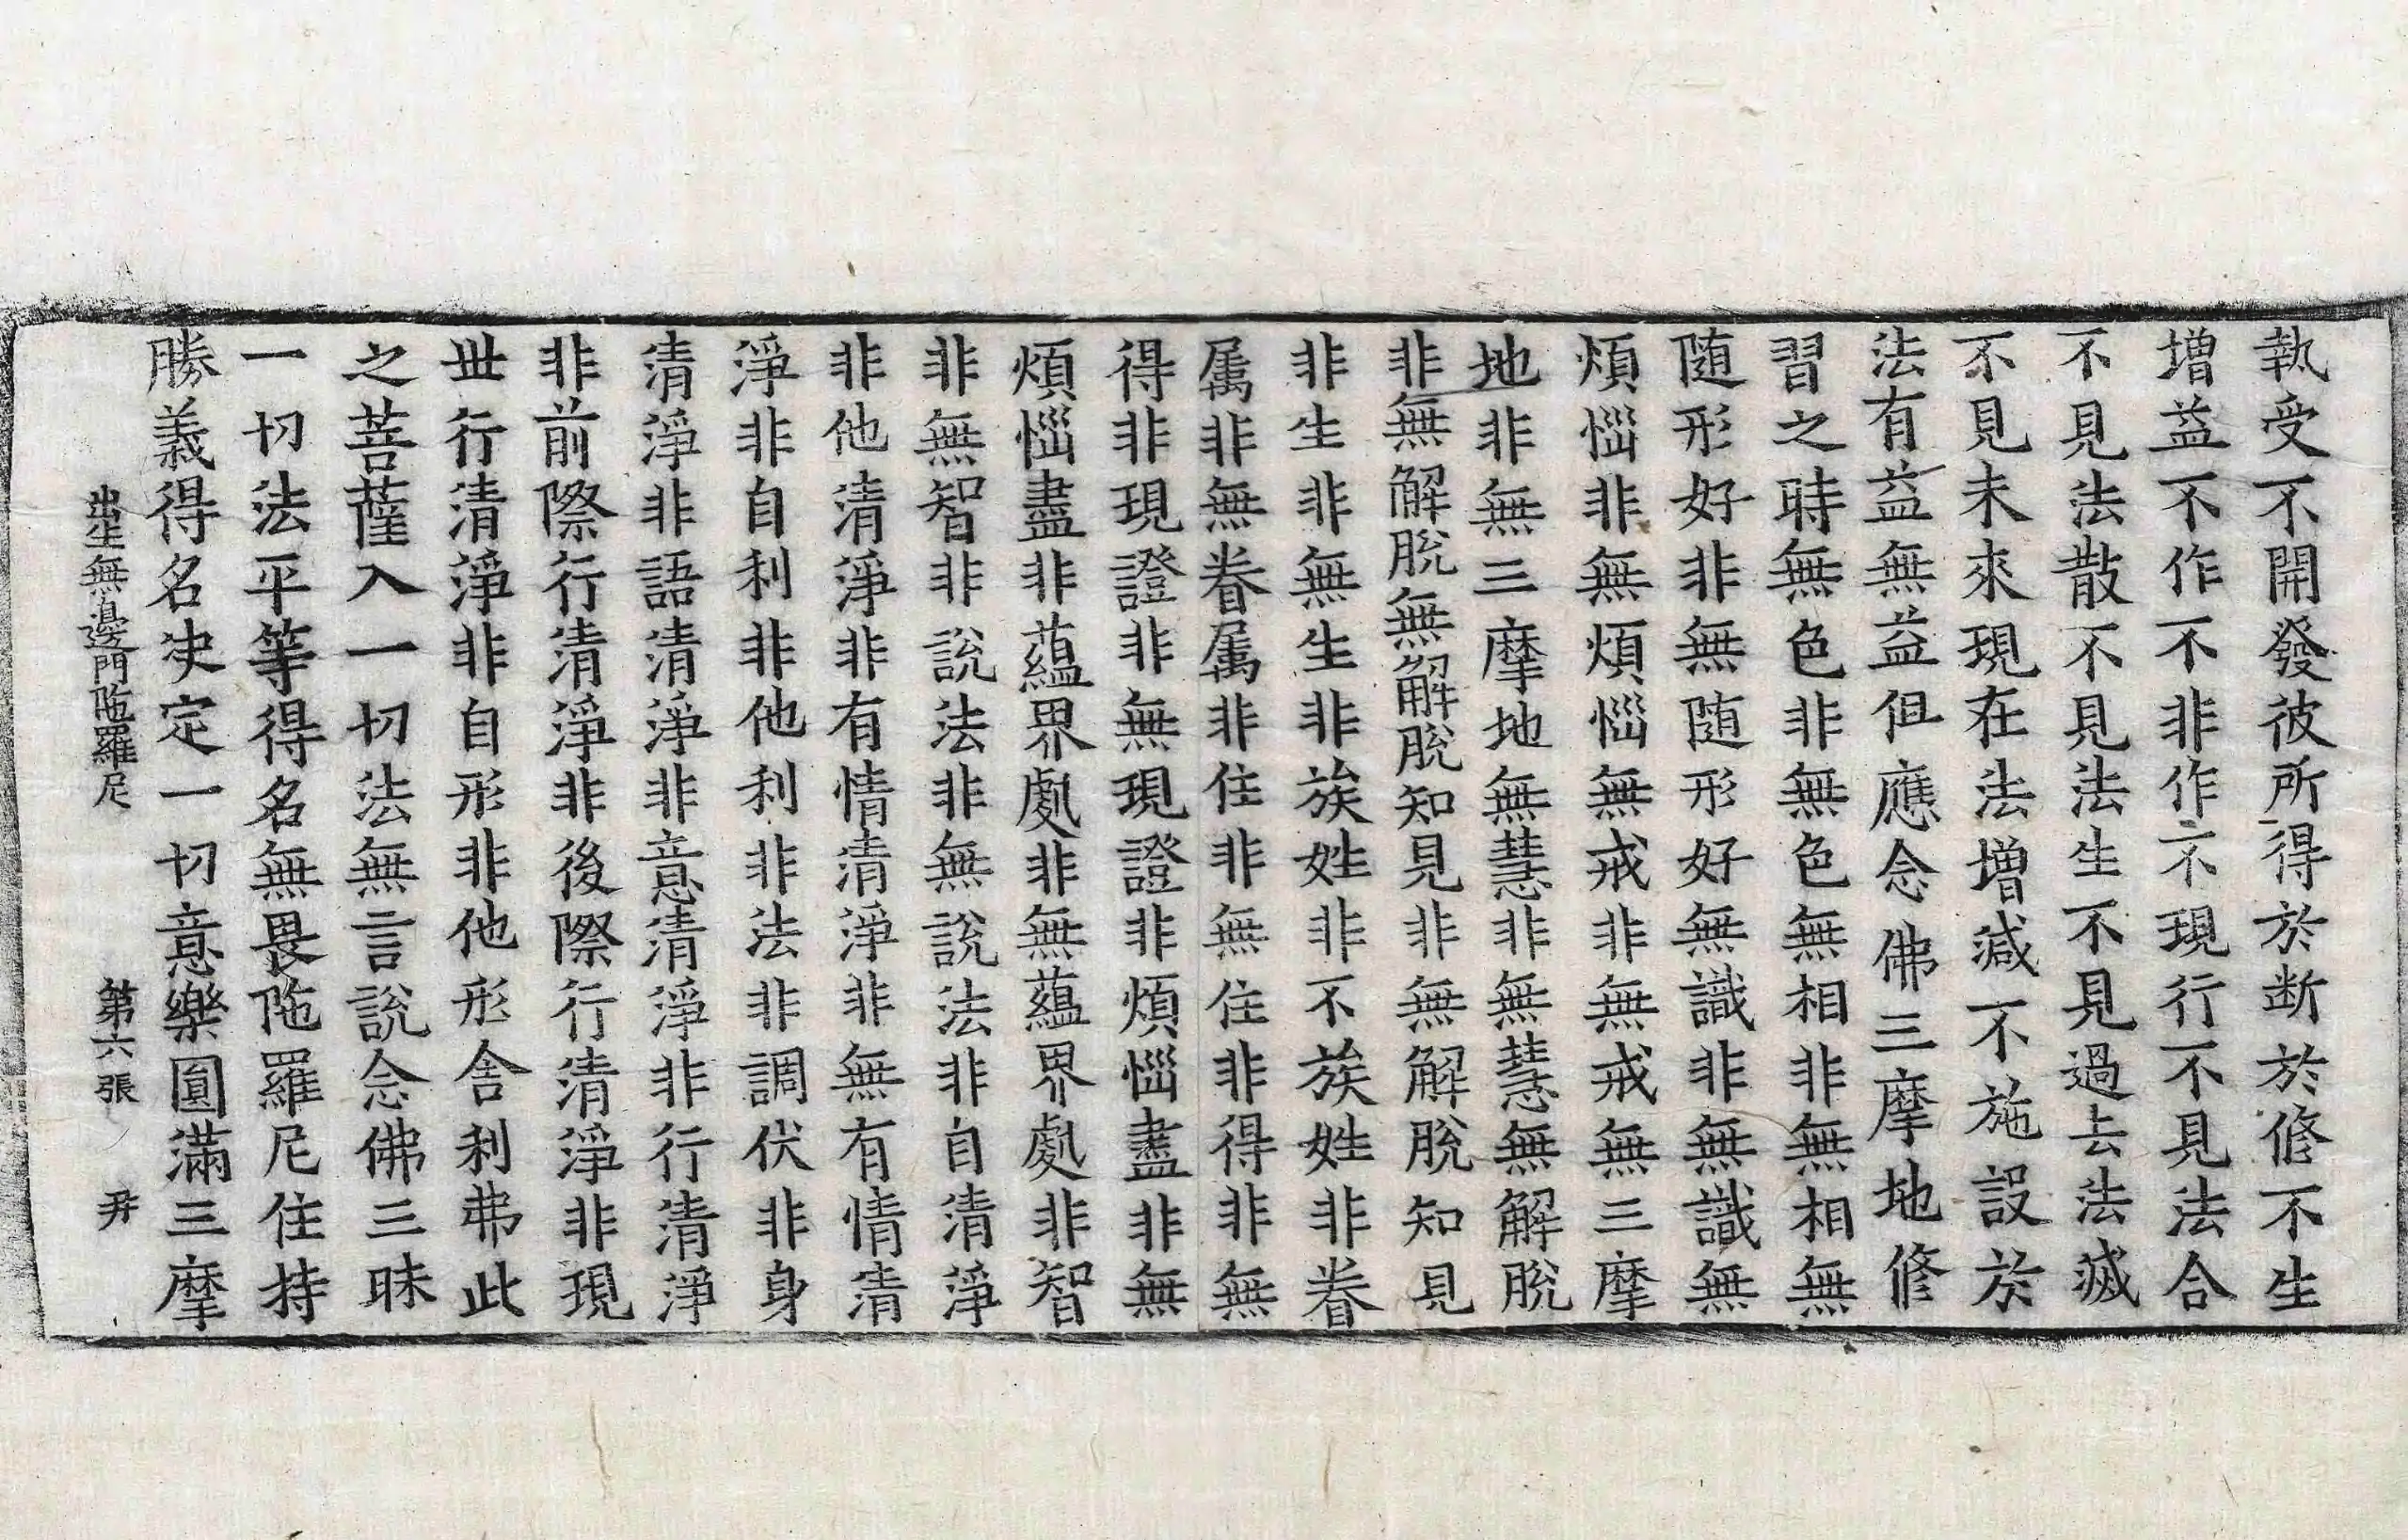 執受不開發彼所得於断於俢不生
增益不作不非作不現行不見法合
不見法散不見法生不見過去法滅
不見未來現在法增減不施設於
法有益無益但應念佛三摩地修
習之時無色非無色無相非無相無
随形好非無随形好無識非無識無
煩惱非無煩惱無戒非無戒無三摩
地非無三摩地無慧非無慧無解脫
非無解脫無解脫知見非無解脫知見
非生非無生非族姓非不族姓非眷
属非無眷属非住非無住非得非無
得非現證非無現證非煩惱盡非無
煩惱盡非蘊界處非無蘊界處非智
非無智非說法非無說法非自清淨
非他清淨非有情清淨非無有情清
淨非自利非他利非法非調伏非身
清淨非語清淨非意清淨非行清淨
非前際行清淨非後際行清淨非現
丗行清淨非自形非他形舎利弗此
之菩薩入一切法無言說念佛三昧
一切法平等得名無畏陁羅尼住持
勝義得名决定一切意樂圓滿三摩
出生無邊門陁羅尼 第六張 𢌿